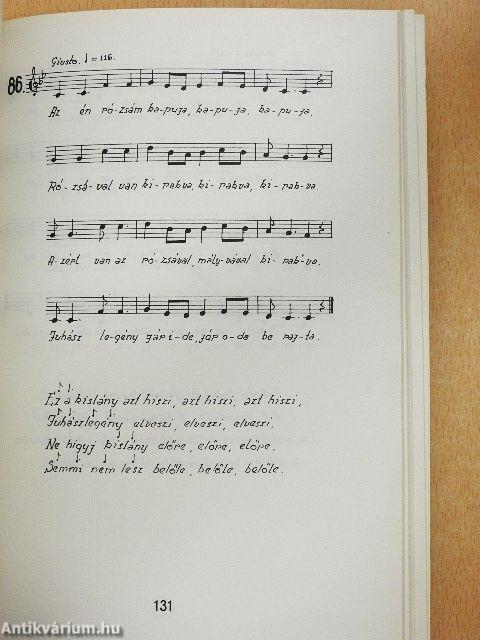 Giusto. ♩ = 116.
86.
Az én ró-zsám ka-puja, ka-pu-ja, ka-pu-ja,
Ró-zsá-val van ki-rakva, ki-rakva, ki-rakva
A-zért van az ró-zsával, mály-vával ki-rak-va.
Juhász le-gény jár i-de, jár o-da be raj-ta.
Ez a kislány azt hiszi, azt hiszi, azt hiszi,
Juhászlegény elveszi, elveszi, elveszi,
Ne higyj kislány előre, előre, előre,
Semmi nem lesz belőle, belőle, belőle.
131
Antikvárium.hu